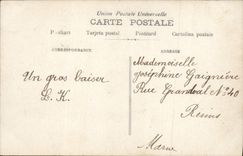 Union Postale Universelle
CARTE POSTALE
Postkart Tarjeta postal Postcard Cartolina postale
CORRESPONDANCE
ADRESSE
Un gros baiser
L. K.
Mademoiselle
Joséphine Gaignière
Rue Grandval Nº 40
Reims
Marne